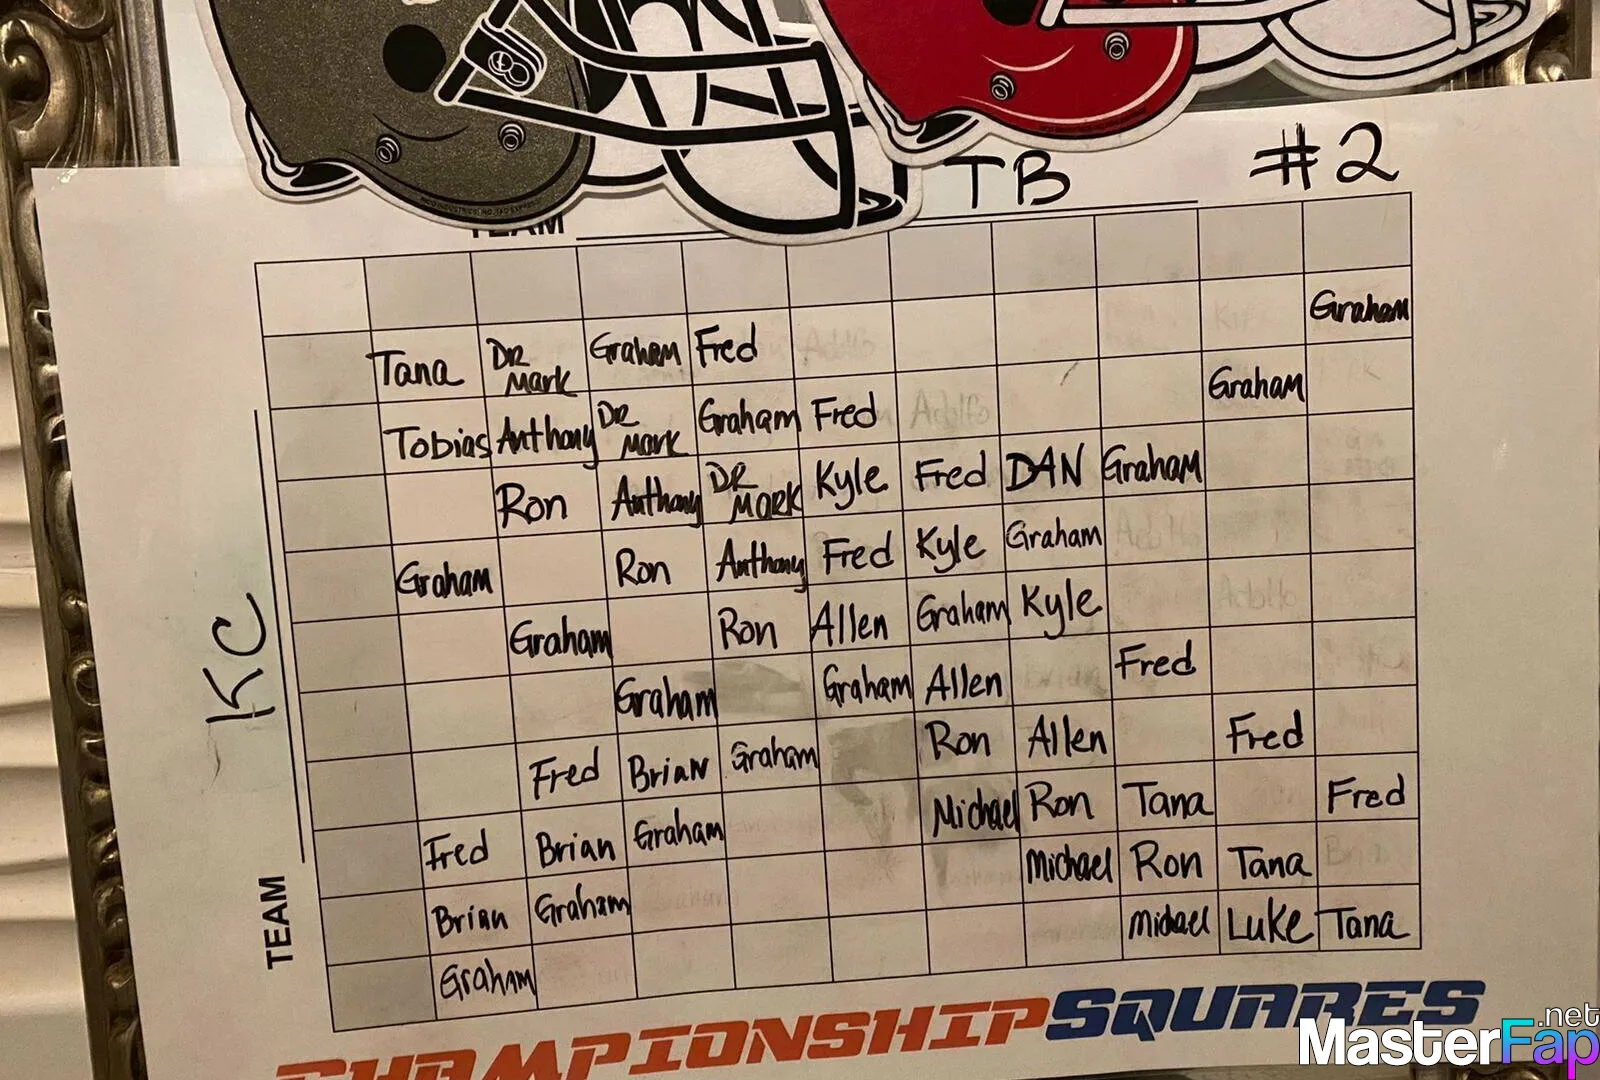 TB #2
TEAM
Graham
Tana DR MARK Graham Fred
Graham
Tobias Anthony DR MARK Graham Fred Adolfo
Ron Anthony DR MARK Kyle Fred DAN Graham
Graham Ron Anthony Fred Kyle Graham
Graham Ron Allen Graham Kyle
Graham Graham Allen Fred
Fred Brian Graham Ron Allen Fred
Fred Brian Graham Michael Ron Tana Fred
Brian Graham Michael Ron Tana
Graham Michael Luke Tana
KC
TEAM
CHAMPIONSHIP SQUARES
MasterFap.net